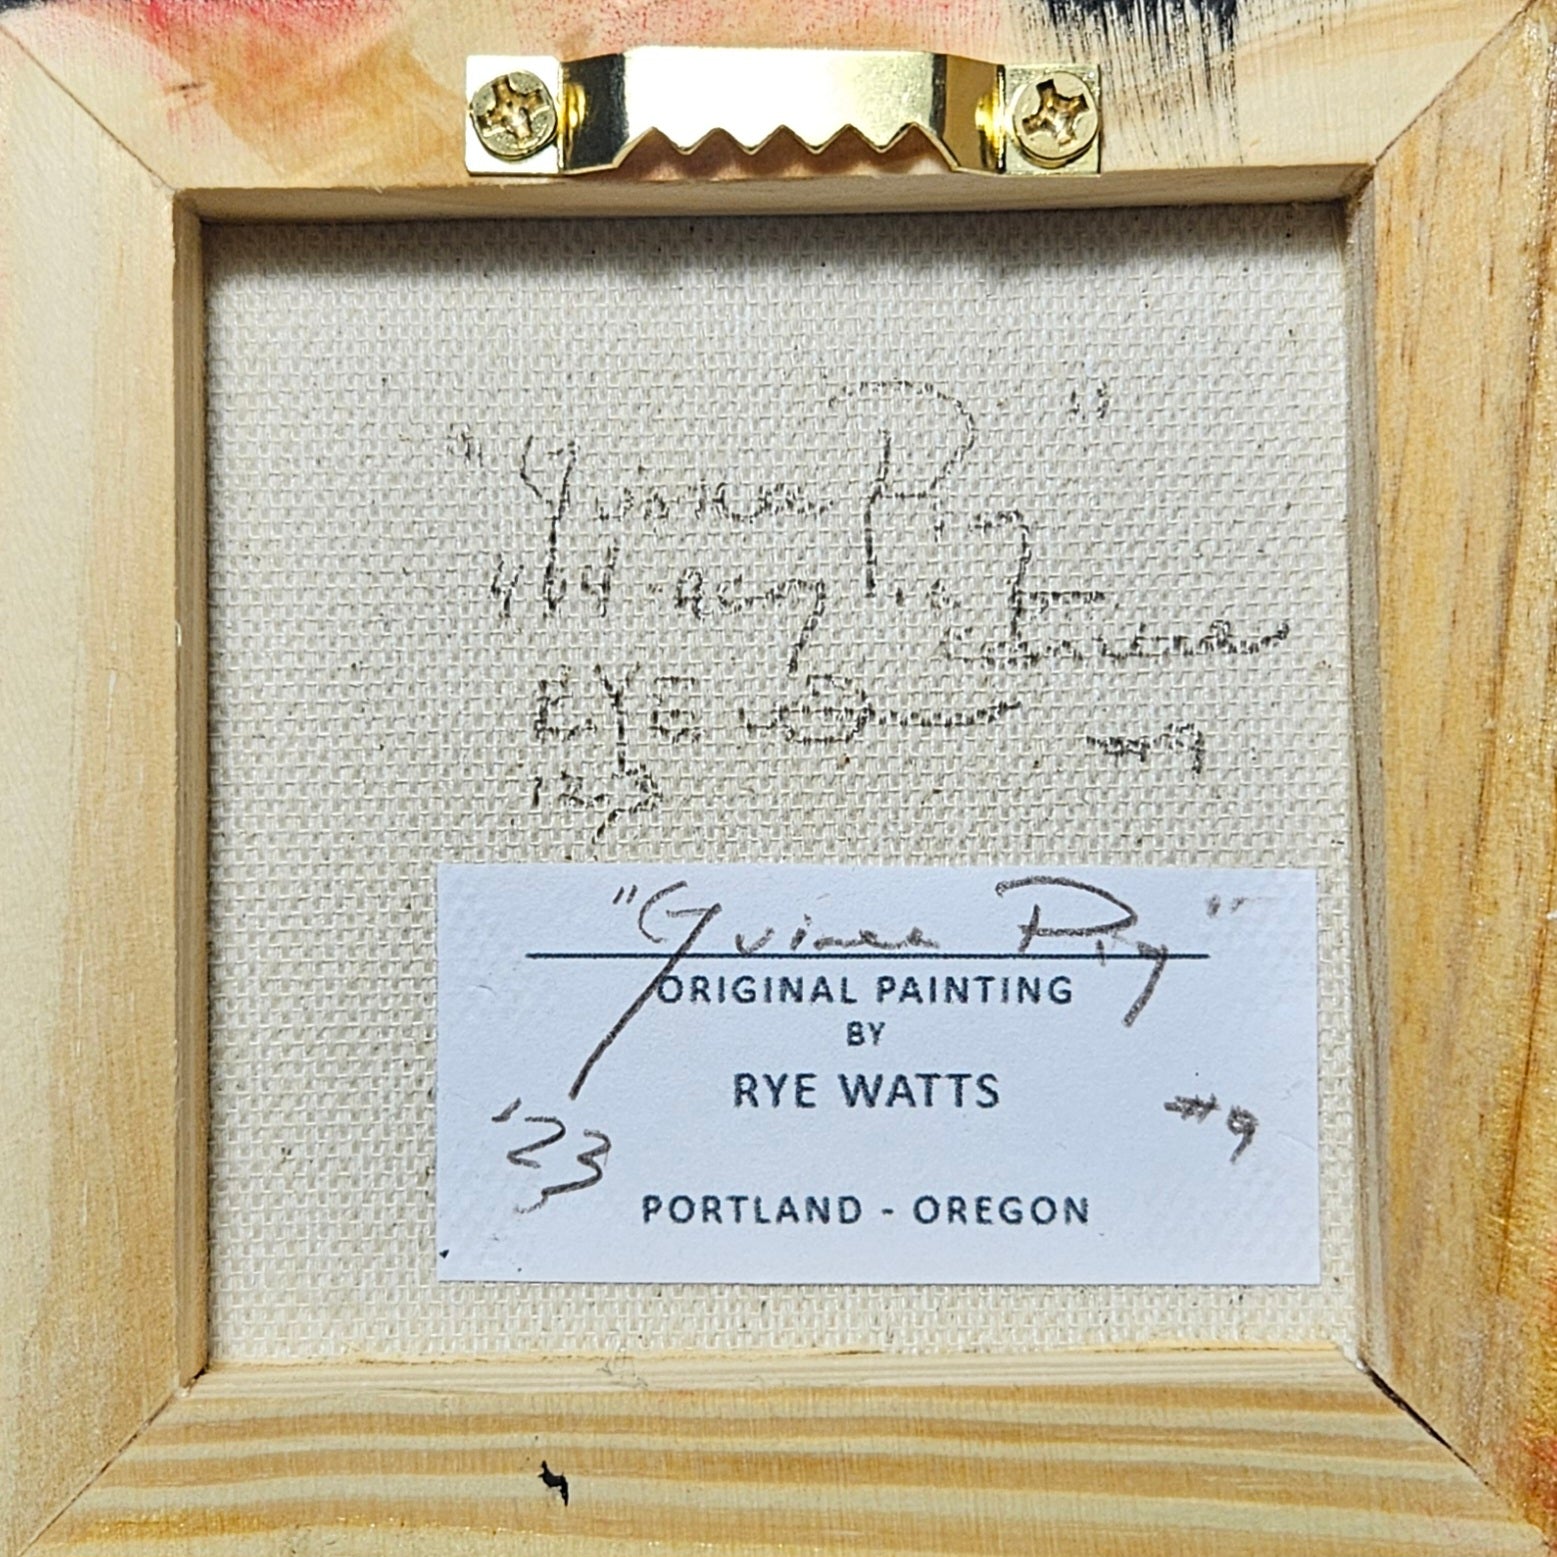 "Guinea Pig"
4x4 acrylic
RYE W
#9
"Guinea Pig"
ORIGINAL PAINTING
BY
RYE WATTS
'23 #9
PORTLAND - OREGON